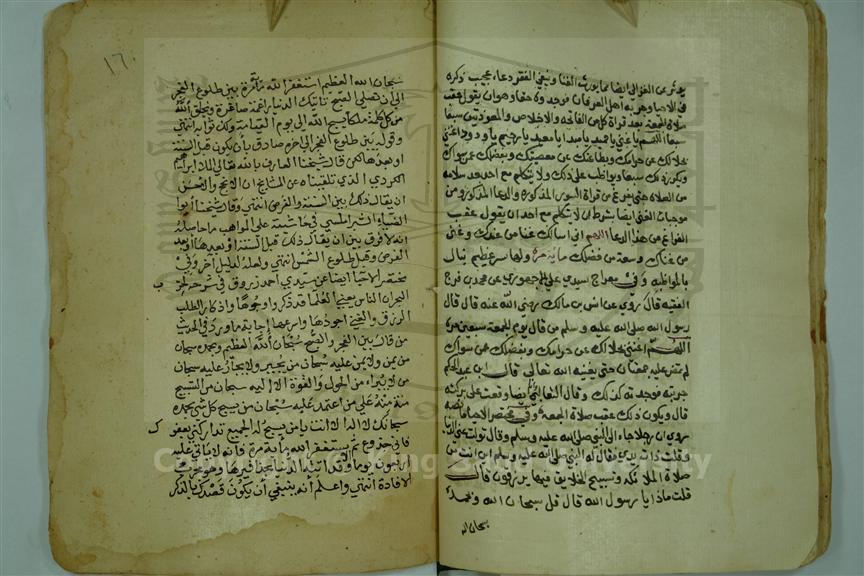 يؤثر عن الغزالي ايضا مما يورث الغنا وينفي الفقر دعاء عجيب ذكره
في الاحيا وجربه اهل العرفان فوجدوه حقا وهو ان يقول عقب
صلاة الجمعة بعد قراة كل من الفاتحة والاخلاص والمعوذتين سبعا
سبعا اللهم يا غني يا حميد يا مبدا يا معيد يا رحيم يا ودود اغنني
بحلالك عن حرامك وبطاعتك عن معصيتك وبفضلك عمن سواك
ويكرر ذلك سبعا ويواظب على ذلك ولا يتكلم مع احد بعد سلامه
من الصلاة حتى يفرغ من قراة السور المذكورة والدعا المذكور ومن
موجبات الغنى ايضا بشرط ان لا يتكلم مع احد ان يقول عقب
الفراغ من هذا الدعا اللهم اني اسالك غنا من عندك وغنى
من غناك وسعة من فضلك ماية مرة ولها سر عظيم ينال
بالمواظبة وفي معراج سيدي علي الاجهوري عن محمد بن فرج
الفقيه قال روي عن انس بن مالك رضي الله عنه قال قال
رسول الله صلى الله عليه وسلم من قال يوم الجمعة سبعين مرة
اللهم اغنني بحلالك عن حرامك وبفضلك عمن سواك
لم تمر عليه جمعتان حتى يغنيه الله تعالى قال ابن عبد الحكم
جربته فوجدته كذلك وقال الثعالبي ايضا وقعت على بركته
قال ويكون ذلك عقب صلاة الجمعة وفي مختصر الاحيا ما نصه
روي ان رجلا جاء الى النبي صلى الله عليه وسلم وقال تولت عني الدنيا
وقلت ذات يدي فقال له النبي صلى الله عليه وسلم اين انت من
صلاة الملائكة وتسبيح الخلايق فبها يرزقون قال
قلت ماذا يا رسول الله قال قل سبحان الله وبحمده
سبحان الله
١٦
سبحان الله العظيم استغفر الله ماية مرة بين طلوع الفجر
الى ان تصلي الصبح تاتيك الدنيا راغمة صاغرة ويخلق الله
من كل كلمة ملكا يسبح الله الى يوم القيامة ولك ثوابه انتهى
وقوله بين طلوع الفجر الى اخره صادق بان يكون قبل السنة
او بعدها لكن قال شيخنا العارف بالله تعالى الملا ابراهيم
الكردي الذي تلقيناه عن المشايخ ان الانجح والاحسن
ان يقال ذلك بين السنة والفرض انتهى وقال شيخنا ابو
الضياء الشبراملسي في حاشيته على المواهب ما حاصله
انه لا فرق بين ان يقال ذلك قبل السنة او بعدها او بعد
الفرض وقبل طلوع الشمس انتهى ولعله لدليل اخر وفي
مختصر الاحيا ايضا عن سيدي احمد زروق في شرحه لحزب
البحر ان الناس يعني العلما قد ذكروا وجوها واذكار الطلب
الرزق والغنى اجودها واسرعها اجابة ما ورد في الحديث
من قال بين الفجر والصبح سبحان الله العظيم وبحمده سبحان
من يمن ولا يمن عليه سبحان من يجير ولا يجار عليه سبحان
من لا يبراء من الحول والقوة الا اليه سبحان من التسبيح
منة منه على من اعتمد عليه سبحان من يسبح كل شيء بحمده
سبحانك لا اله الا انت يا من يسبح له الجميع تداركني بعفوك
فاني جزوع ثم يستغفر الله ماية مرة فانه لا ياتي عليه
اربعون يوما وقد اتته الدنيا بحذافيرها وهو غريب
الافادة انتهى واعلم انه ينبغي ان يكون قصدك بالذكر
Copyright © King Saud University